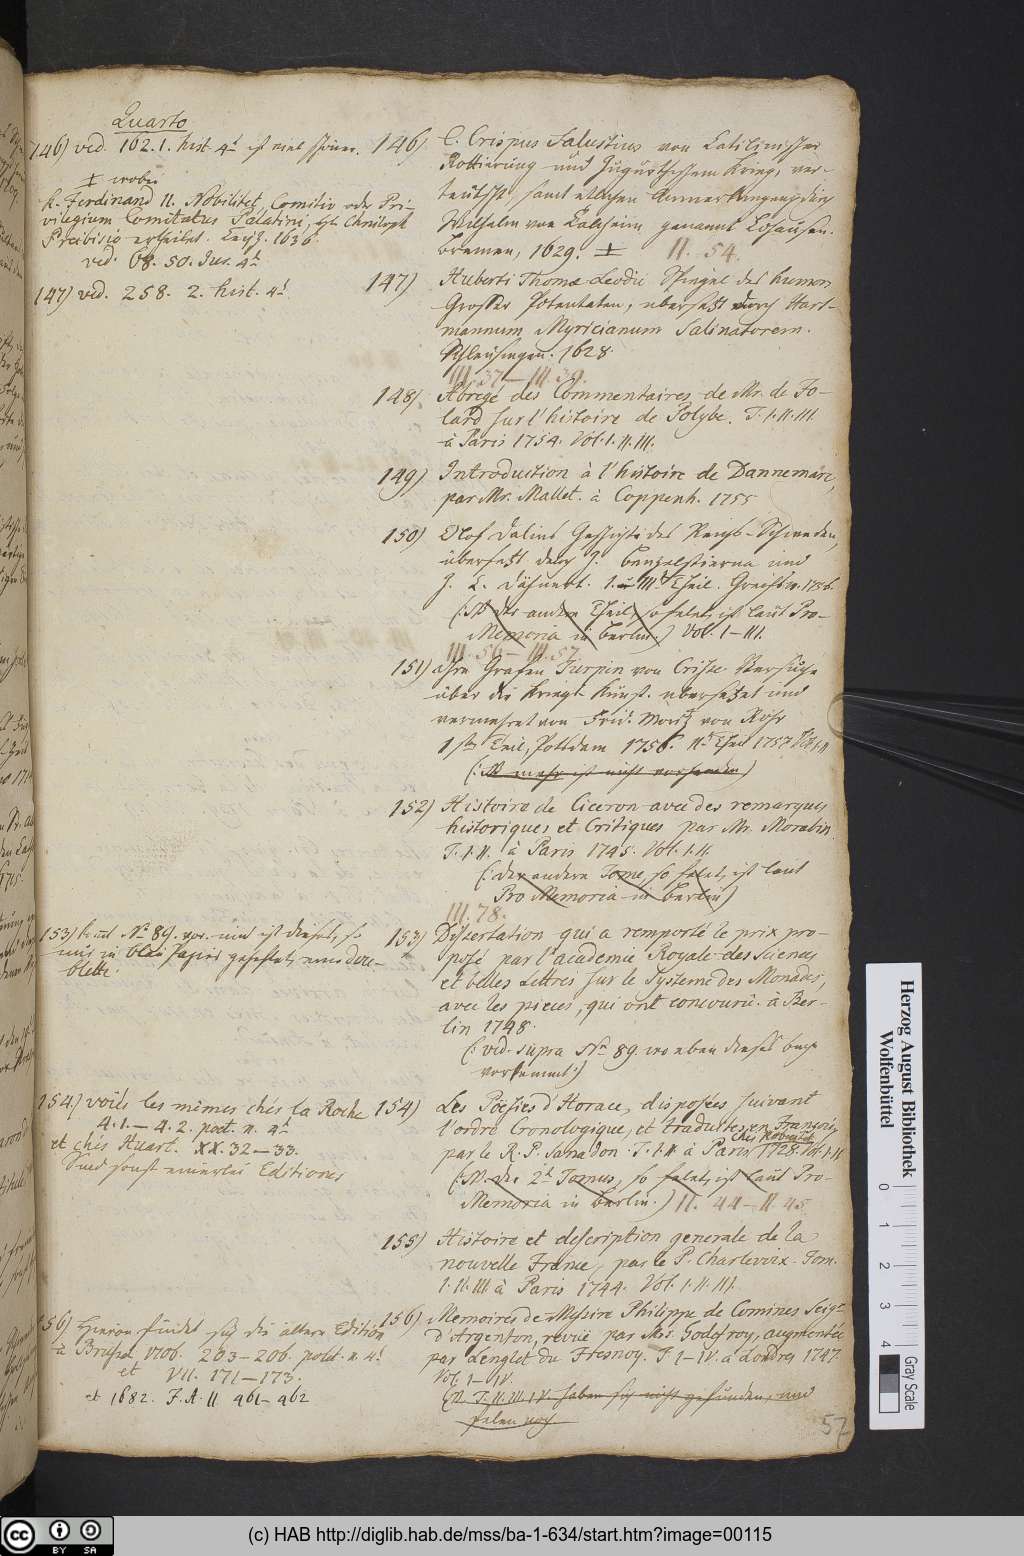 Quarto
146) vid. 162. 1. hist. 4t. ist viel schöner.
‡ wobei
K. Ferdinand II. Nobilitet, Comitiv oder Pri-
vilegium Comitatus Palatini, Christoph
ertheilet. 1636.
vid. 68. 50. Jur. 4t.
147) vid. 258. 2. hist. 4t.
153) No 89. vor. und ist dieses, so
nur in blau Papier geheftet, eine dou-
blette.
154.) voiés les mêmes chés la Roche
4. 1. — 4. 2. poet. n. 4t.
et chés Huart. XX. 32 — 33.
Sind sonst einerlei Editiones
156) Hievon findet sich die ältere Edition
à Brusel 1706. 203 — 206. polit. n. 4t.
et VII. 171 — 173.
et 1682. F. A. II 461 — 462
146) C. Crispus Salustius von Catilinischer
Rottierung und Jugurthischem Krieg, ver-
teutscht samt etlichen Anmerkungen durch
Wilhelm von Kalcheim genannt Lohausen.
Bremen, 1629. ‡ II. 54.
147) Huberti Thomæ Leodii Spiegel des humors
Grosser Potentaten, übersetzt durch Hart-
mannum Myricianum Salinatorem.
Schleusingen. 1628.
III. 37 — III. 39.
148) Abregé des Commentaires de Mr. de Fo-
lard sur l'histoire de Polybe. T. I. II. III.
à Paris 1754. Vol. I. II. III.
149) Introduction à l'histoire de Dannemarc,
par Mr. Mallet. à Coppenh. 1755
150) Olof Dalins Geschichte des Reichs Schweden,
übersetzt durch J. Benzelstierna und
J. C. Dähnert. I. u. III. Theil. Greifsw. 1756.
(: NB der andere Theil, so fehlet, ist laut Pro-
Memoria in Berlin.) Vol. I — III.
III. 56 — III. 57.
151) Grafen Turpin von Crisse Versuche
über die Kriegs Kunst. übersetzet und
vermehret von Frid. Moriz von Rohr
1ster Teil, Potsdam 1756. IIt Theil 1757 Vol. I. II
(: NB mehr ist nicht vorhanden)
152) Histoire de Ciceron avec des remarques
historiques et Critiques par Mr. Morabin
T. I. II. à Paris 1745. Vol. I. II.
(: der andere Tome, so fehlet, ist laut
Pro Memoria in Berlin)
III. 78.
153) Dissertation qui a remporté le prix pro-
posé par l'academie Royale des Sciences
et belles Lettres sur le Systeme des Monades,
avec les pieces, qui ont concouru. à Ber-
lin 1748.
(: vid. supra No 89. wo eben dieses buch
vorkommt:)
154) Les Poësies d'Horace, disposées suivant
l'ordre Cronologique, et traduites en François,
par le R. P. Sanadon. T. I. II. à Paris 1728. Vol. I. II
(: NB. der 2t Tomus, so fehlet, ist laut Pro-
Memoria in Berlin.) II. 44 — II. 45.
155) Histoire et description generale de la
nouvelle France, par le P. Charlevoix. Tom.
I. II. III. à Paris 1744. Vol. I. II. III.
156) Memoires de Messire Philippe de Comines Seigr
d'Argenton, revue par Mss. Godefroy, augmentée
par Lenglet du Fresnoy. T. I — IV. à Londres 1747.
Vol. I — IV.
(NB. T. II. III. IV. haben sich nicht gefunden, und
fehlen noch.
57
Herzog August Bibliothek
Wolfenbüttel
0 1 2 3 4
Gray Scale
cc BY SA
(c) HAB http://diglib.hab.de/mss/ba-1-634/start.htm?image=00115